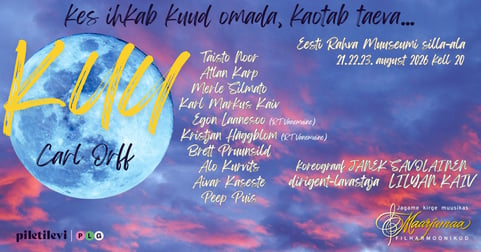 Kes ihkab Kuud omada, Kaotab taeva...
KUU
Carl Orff
Eesti Rahva Muuseumi silla-ala
21.22.23. august 2026 Kell 20
Taisto Noor
Atlan Karp
Merle Silmato
Karl Markus Kaiv
Egon Laanesoo (RT Vanemuine)
Kristjan Häggblom (RT Vanemuine)
Brett Pruunsild
Alo Kurvits
Aivar Kaseste
Peep Puis
Koreograaf JANEK SAVOLAINEN
dirigent-lavastaja LILYAN KAIV
piletilevi | PLG
Jagame kirge muusikas
Maarjamaa
FILHARMOONIKUD